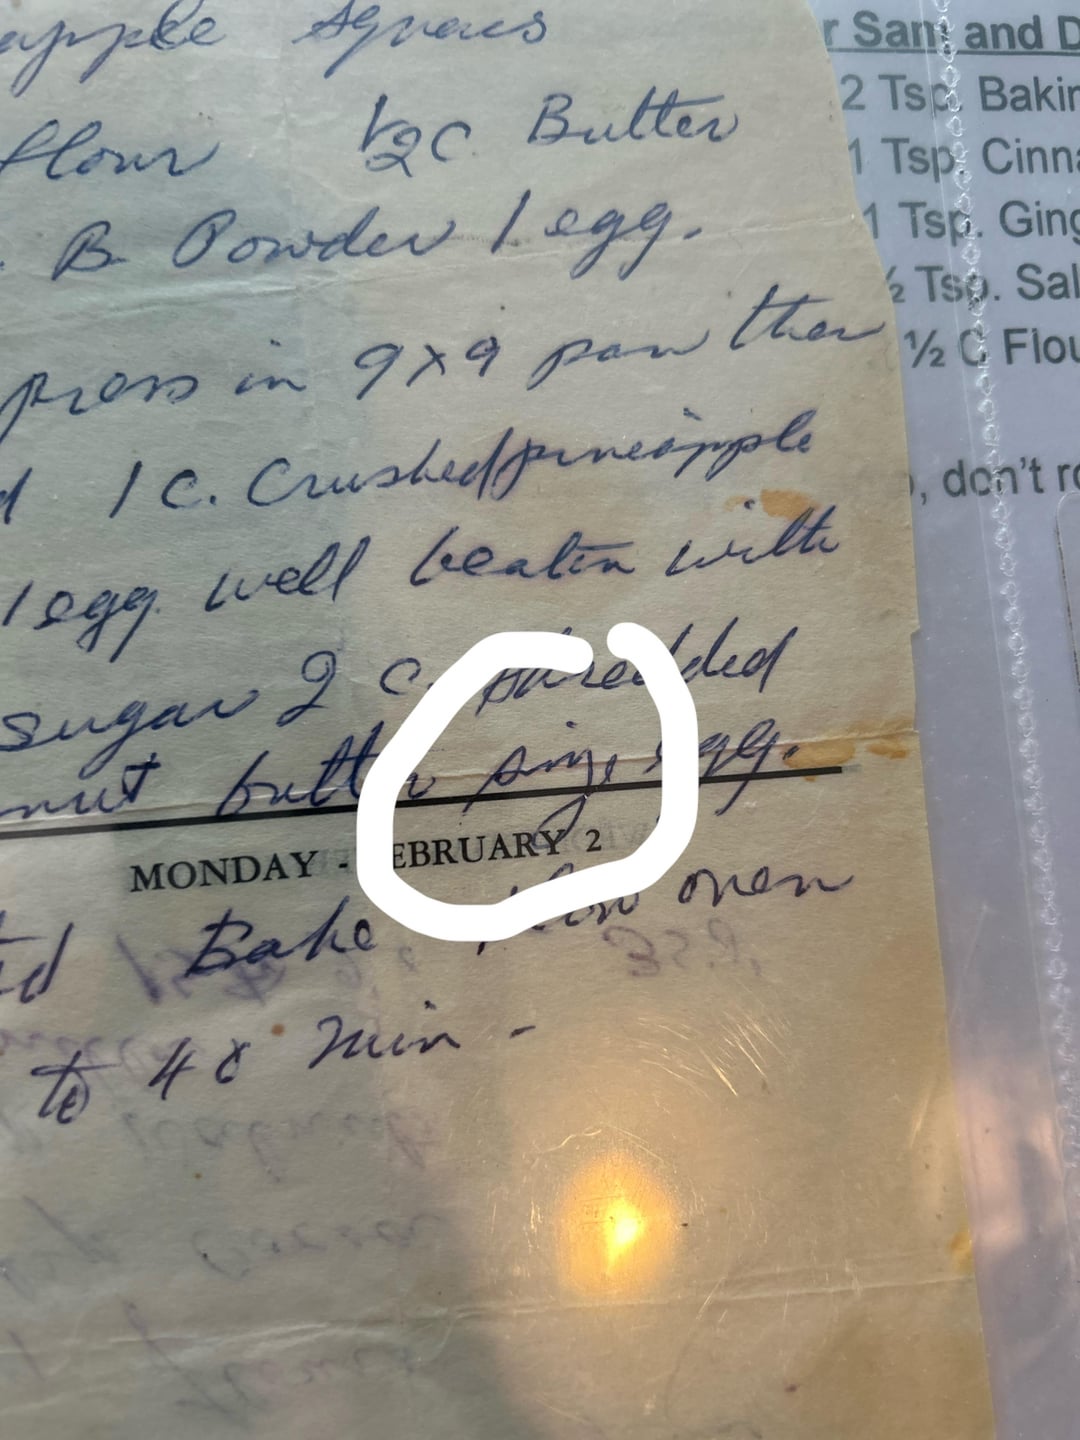 apple Squares
flour ½ C. Butter
. B. Powder 1 egg.
press in 9x9 pan then
d 1 C. Crushed pineapple
1 egg well beaten with
sugar 2 C. shredded
nut butter size egg.
MONDAY - FEBRUARY 2
ed Bake slow oven
to 40 min -
r Sam and D
2 Tsp. Bakin
1 Tsp. Cinna
1 Tsp. Ging
½ Tsp. Sal
½ C Flou
, don't ro